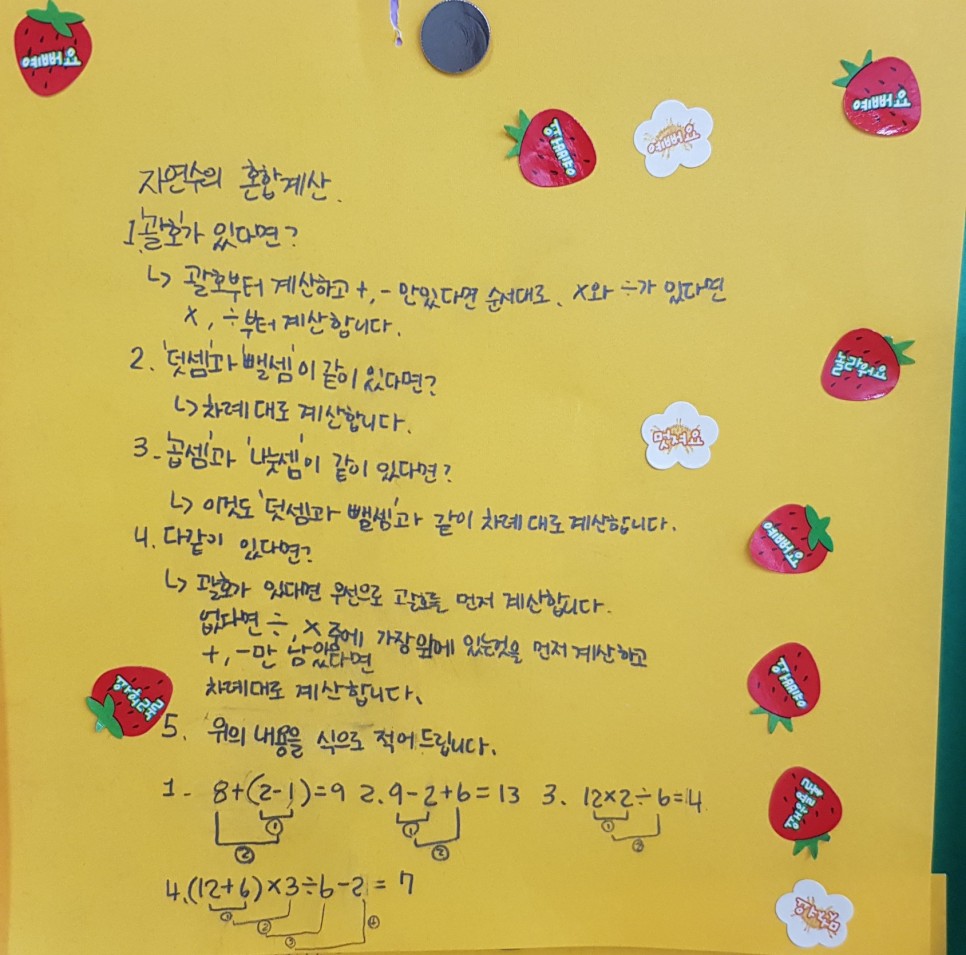 예뻐요
예뻐요
예뻐요
자연수의 혼합계산.
1. '괄호'가 있다면?
↳ 괄호부터 계산하고 +, - 만있다면 순서대로, ×와 ÷가 있다면
×, ÷부터 계산합니다.
2. '덧셈'과 '뺄셈'이 같이 있다면?
놀라워요
↳ 차례대로 계산합니다.
멋져요
3. '곱셈'과 '나눗셈'이 같이 있다면?
↳ 이것도 '덧셈과 뺄셈'과 같이 차례대로 계산합니다.
예뻐요
4. 다같이 있다면?
↳ 괄호가 있다면 우선으로 괄호를 먼저 계산합니다.
없다면 ÷, × 중에 가장 앞에 있는것을 먼저 계산하고
+, -만 남았다면
차례대로 계산합니다.
5. 위의 내용을 식으로 적어 드립니다.
1. 8+(2-1)=9 2. 9-2+6=13 3. 12×2÷6=4
① ① ①
② ② ②
4. (12+6)×3÷6-2=7
① ② ③ ④